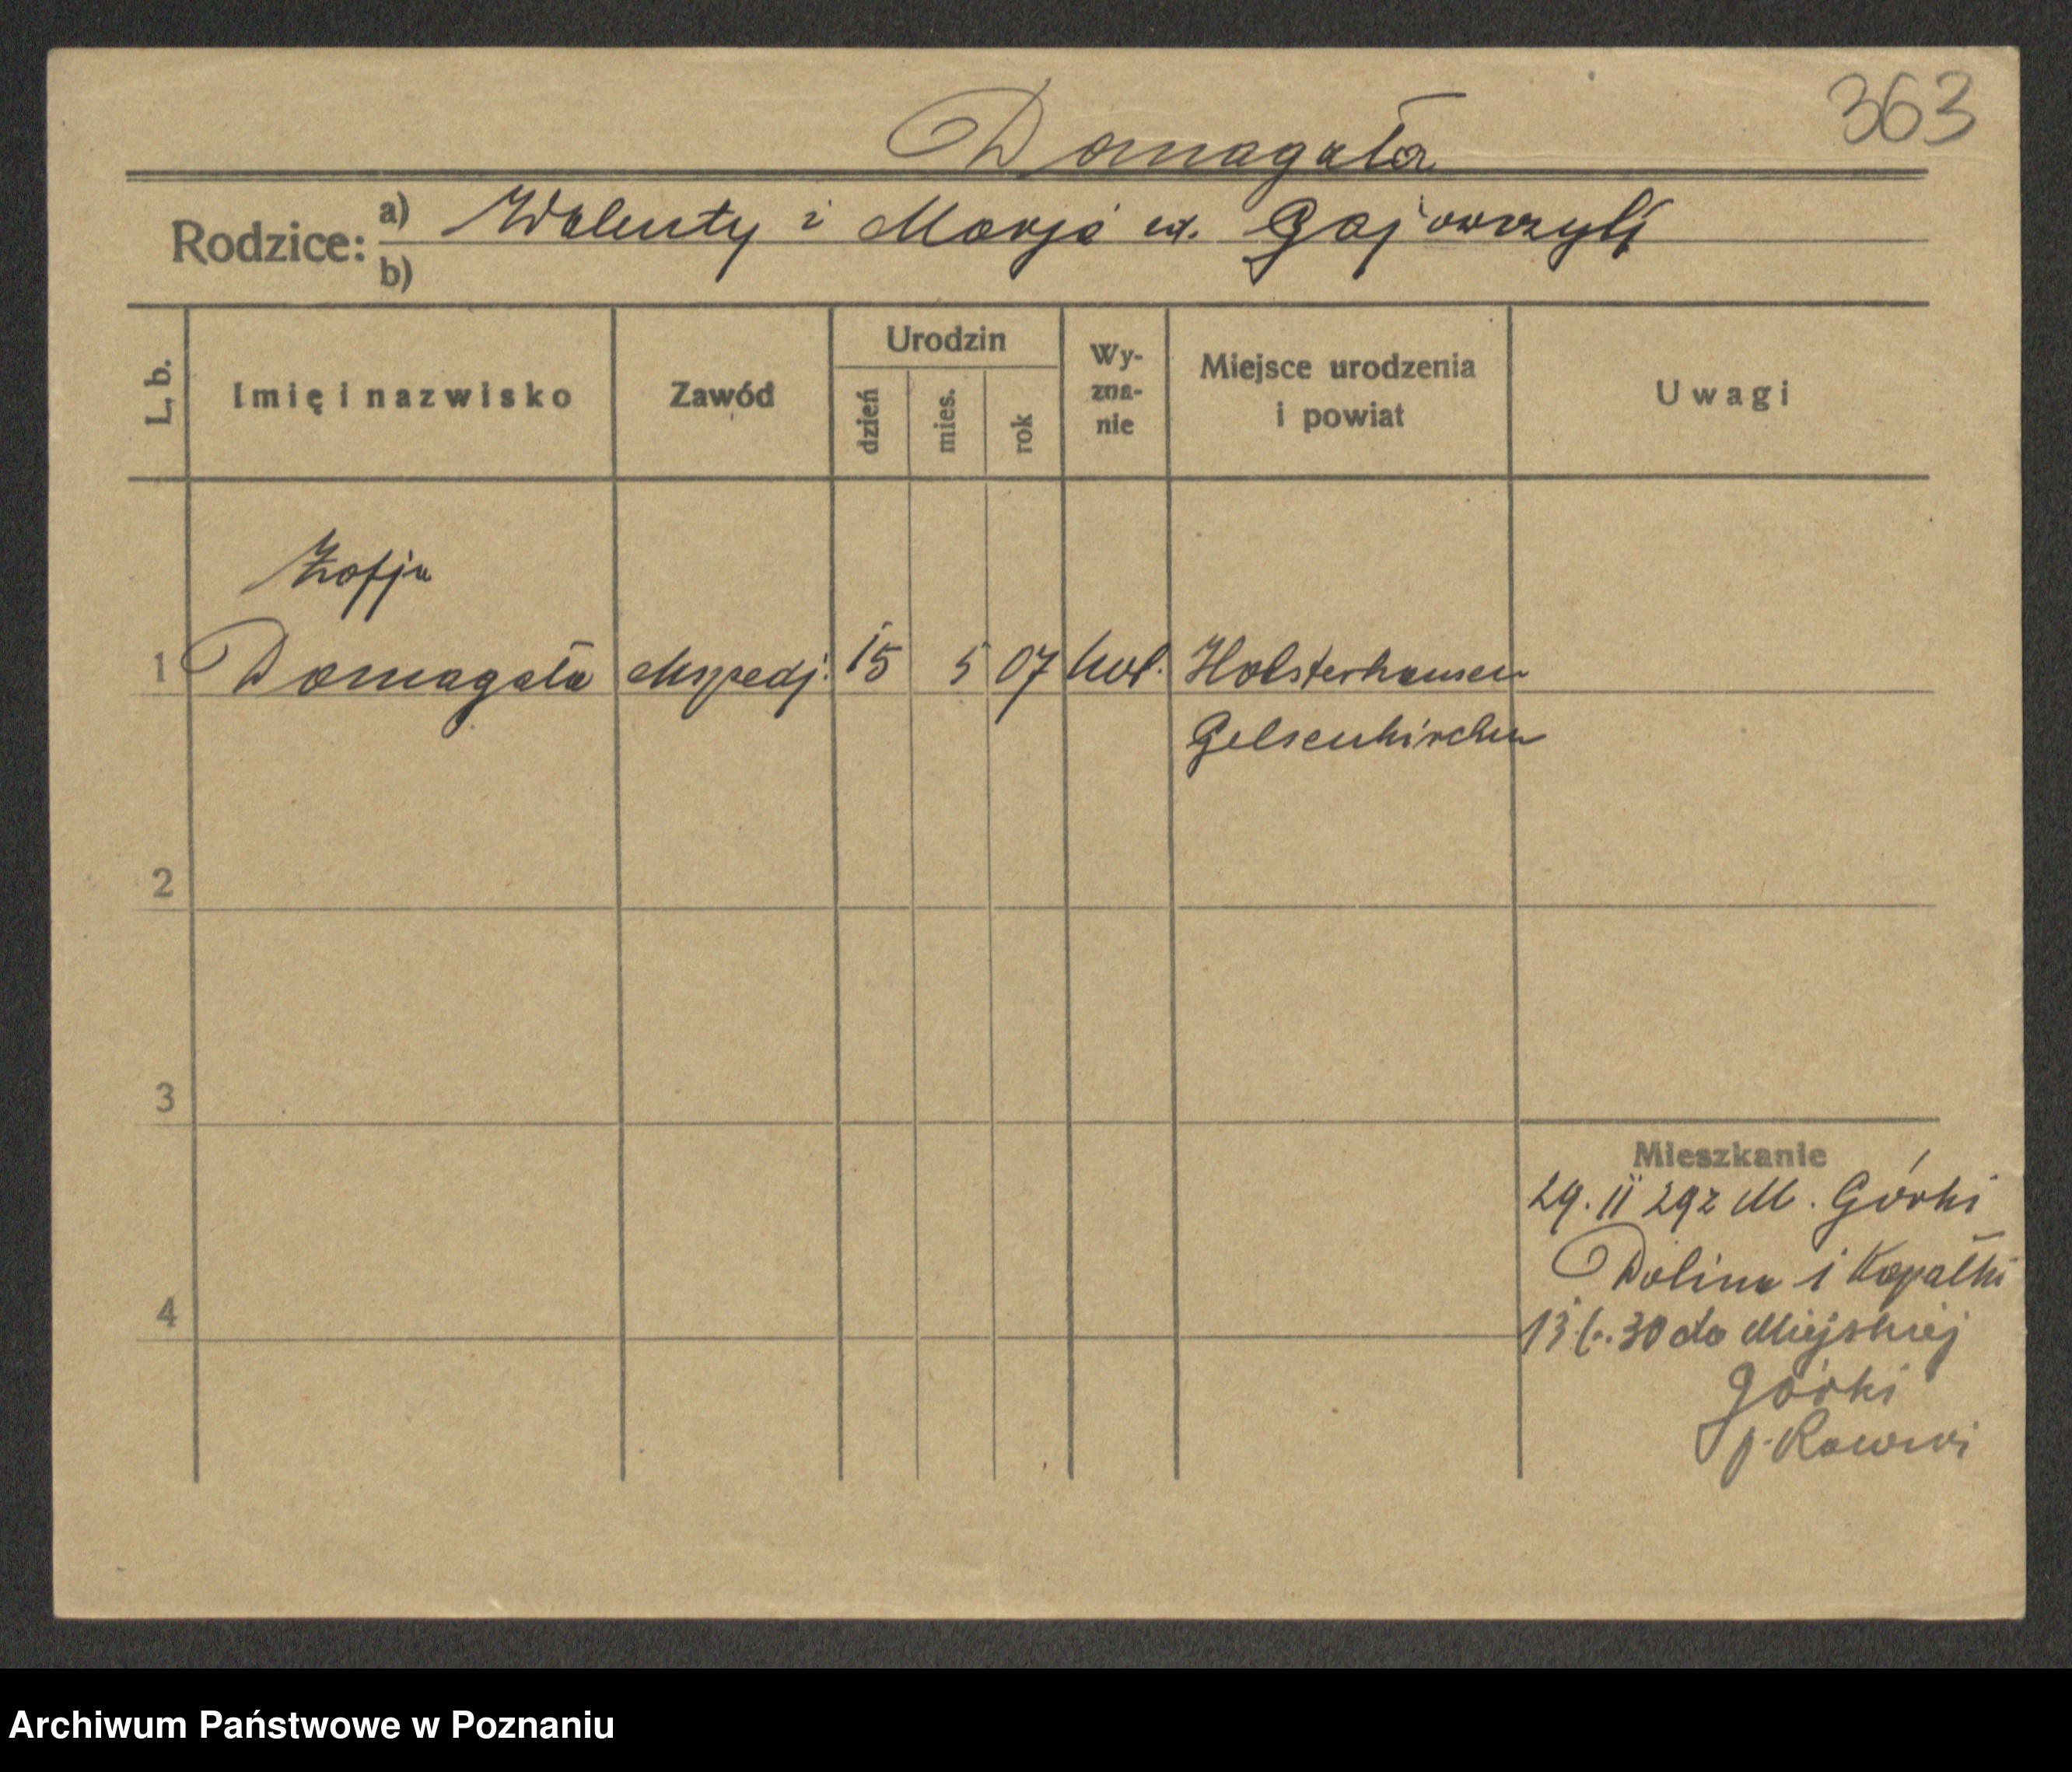 363
Domagała
Rodzice: a) Walenty i Marja
b)
L. b.
Imię i nazwisko
Zawód
Urodzin
dzień
mies.
rok
Wy-
zna-
nie
Miejsce urodzenia
i powiat
Uwagi
Zofja
1 Domagała ekspedj. 15 5 07 kat. Holsterhausen
Gelsenkirchen
2
3
Mieszkanie
29. II 29 z M. Górki
Dolina i Kopałki
4
13 30 do Miejskiej
Górki
p. Rawicz
Archiwum Państwowe w Poznaniu